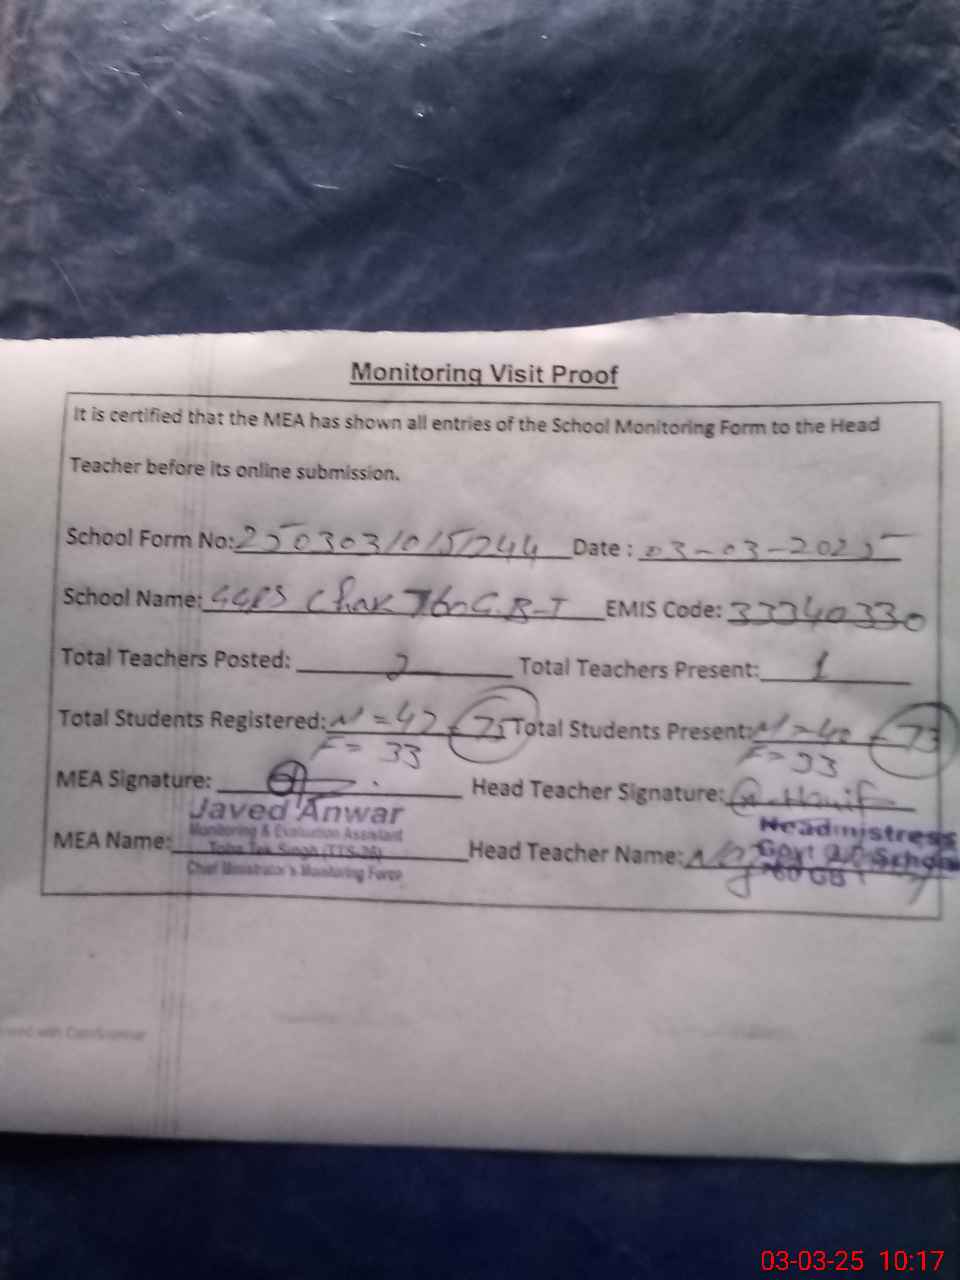 Monitoring Visit Proof
It is certified that the MEA has shown all entries of the School Monitoring Form to the Head
Teacher before its online submission.
School Form No: 2503031015744 Date : 03-03-2025
School Name: GGPS Chak 760 G.B-I EMIS Code: 33340330
Total Teachers Posted: 2 Total Teachers Present: 1
Total Students Registered: M = 42 75 Total Students Present: M = 40 73
F = 33 F = 33
MEA Signature: Head Teacher Signature:
Javed Anwar
Monitoring & Evaluation Assistant
Toba Tek Singh (TTS-26)
Chief Minister's Monitoring Force
MEA Name: Head Teacher Name:
Headmistress
Govt School
760 GB
03-03-25 10:17